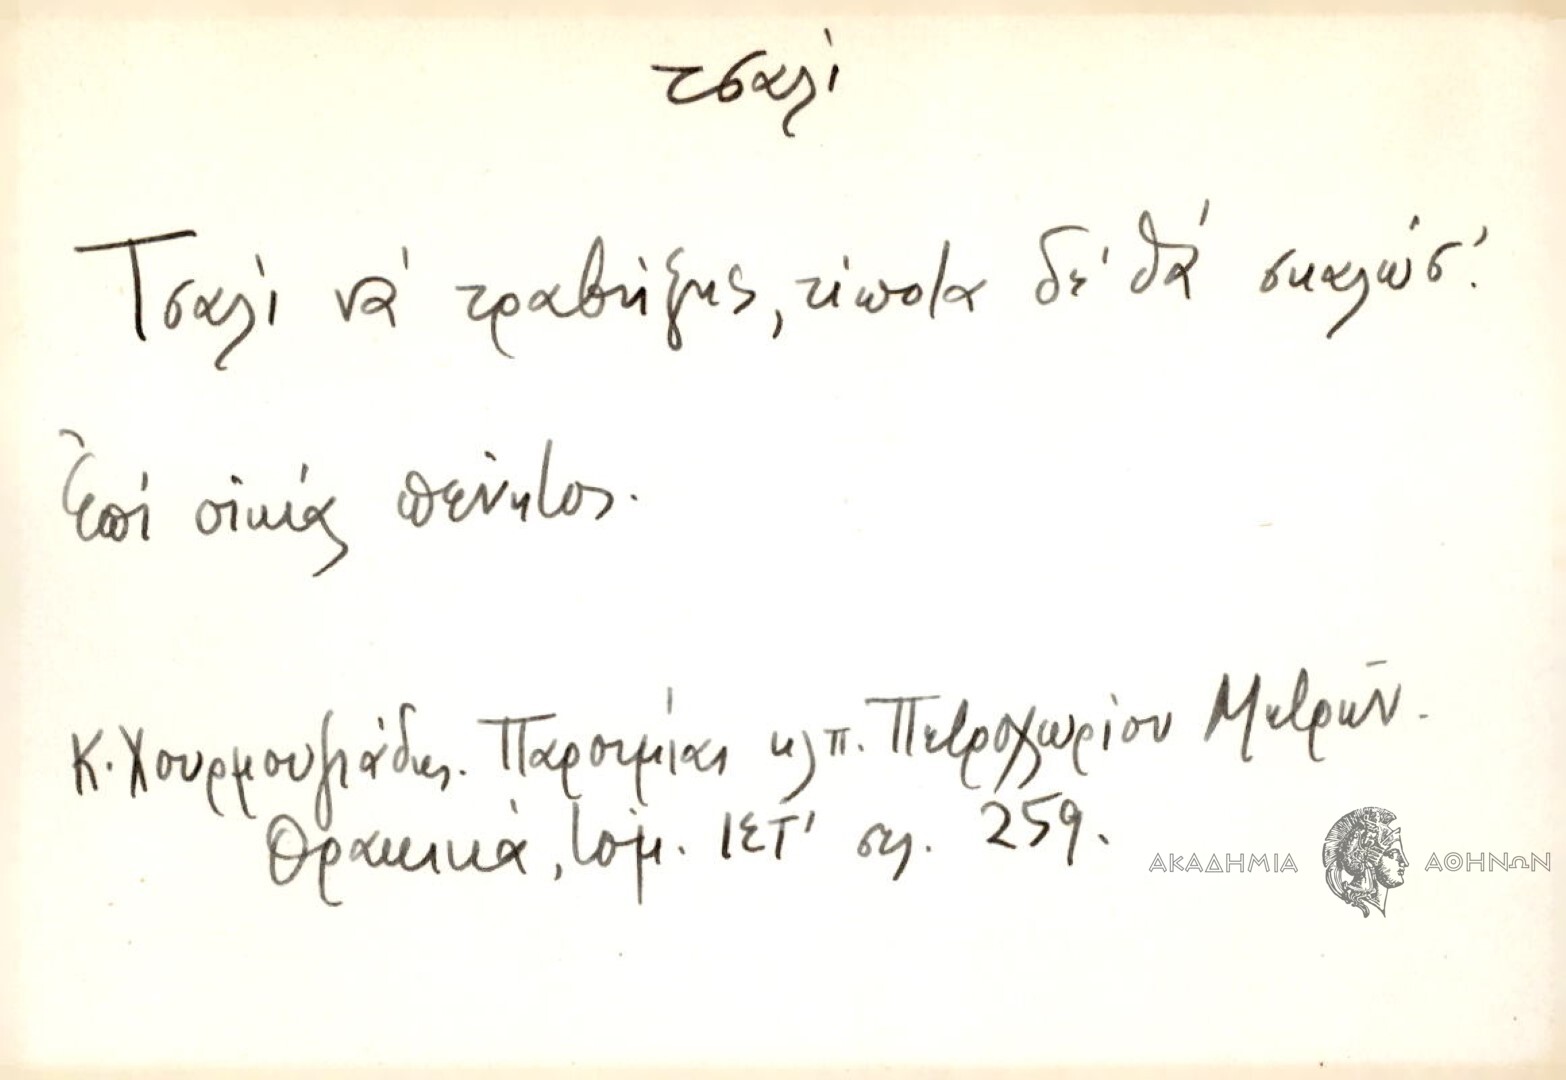 τσαλί
Τσαλί νά τραβήξης, τίποτα δέ θά σκαλώσ'.
Ἐπί οἰκίας πένητος.
Κ. Χουρμουζιάδης. Παροιμίαι κλπ. Πετροχωρίου Μετρῶν.
Θρακικά, τόμ. ΙΣΤ' σελ. 259.
ΑΚΑΔΗΜΙΑ ΑΘΗΝΩΝ